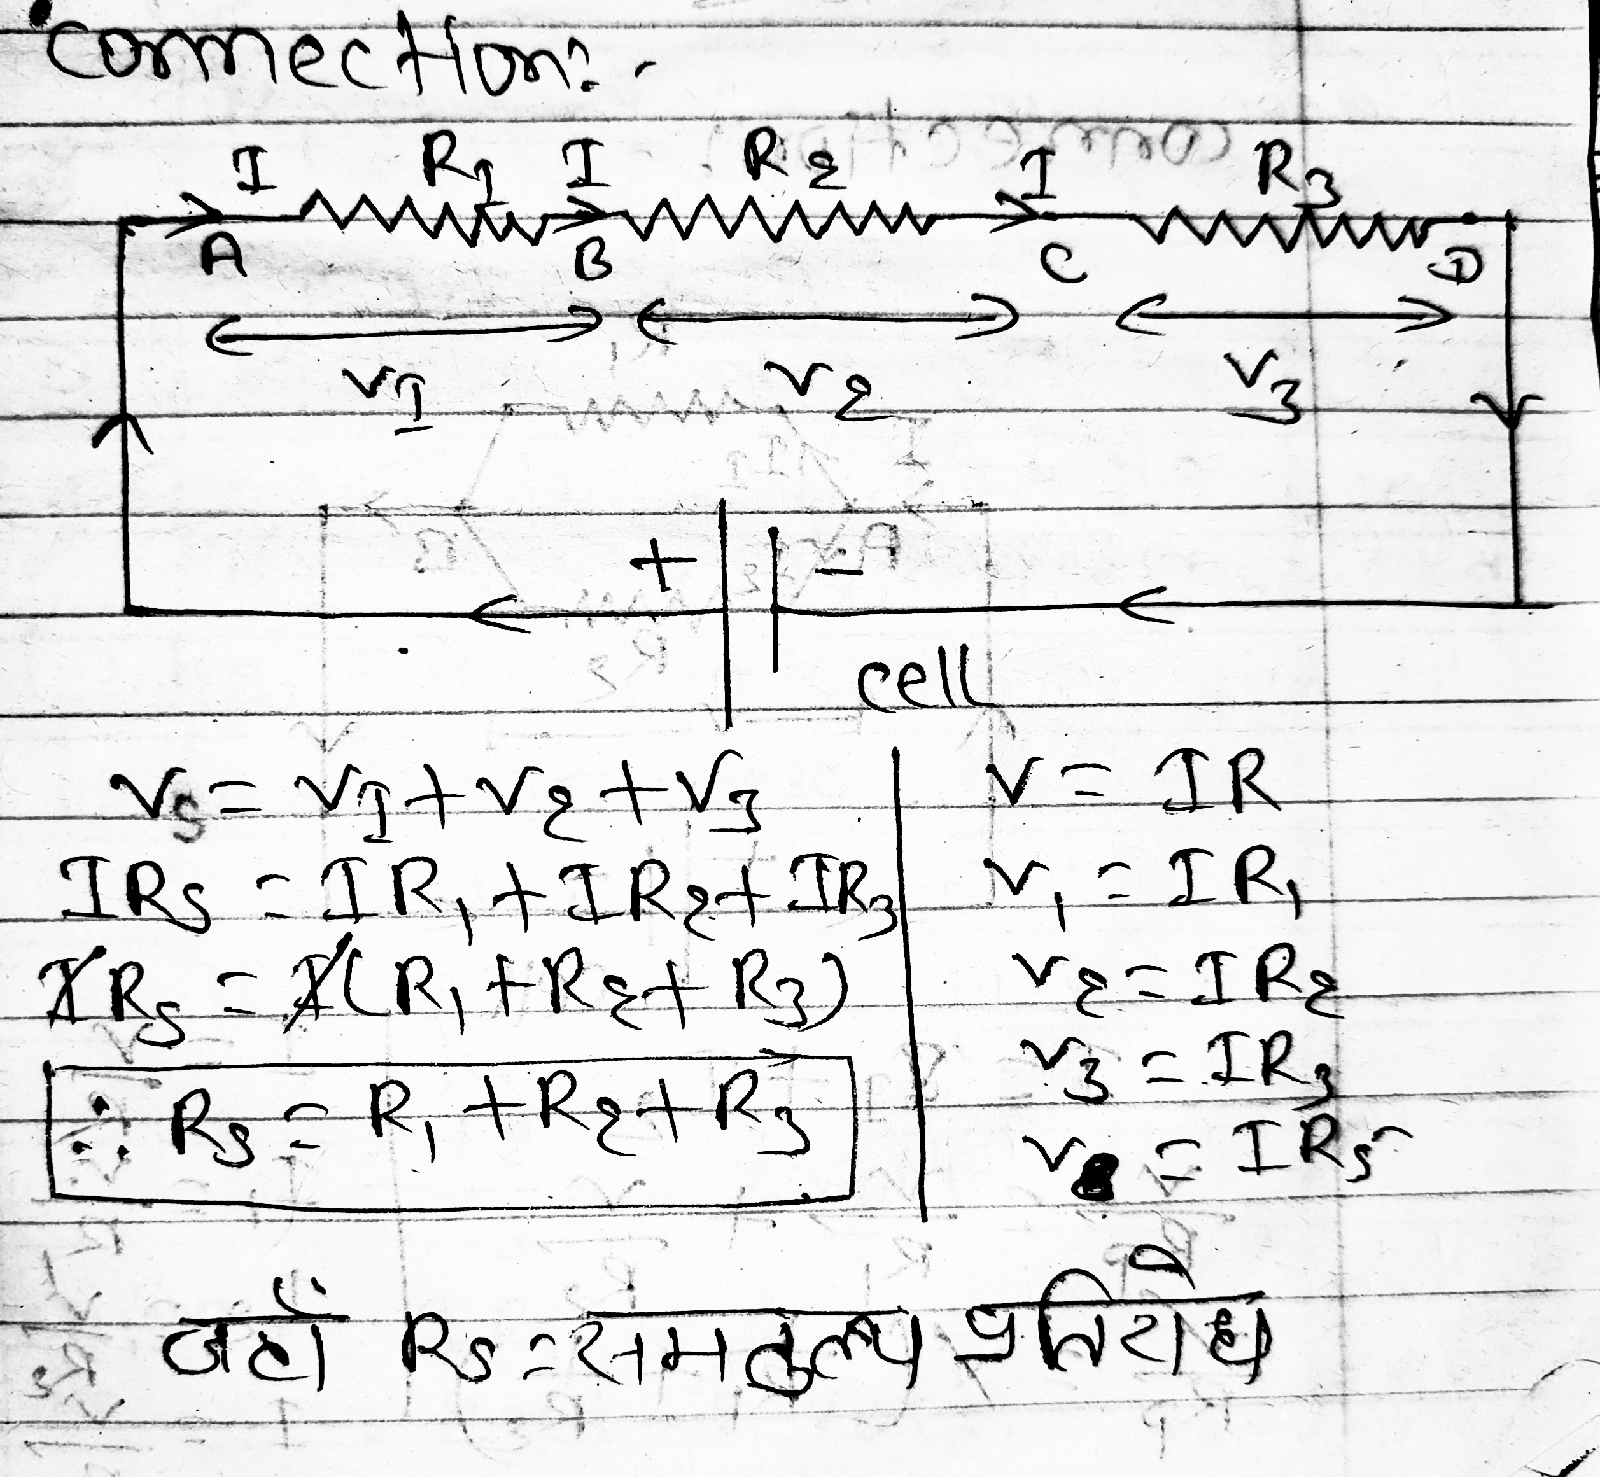 connection:-
I R1 I R2 I R3
A B C D
V1 V2 V3
+ -
cell
Vs = V1 + V2 + V3
IRs = IR1 + IR2 + IR3
IRs = I(R1 + R2 + R3)
∴ Rs = R1 + R2 + R3
V = IR
V1 = IR1
V2 = IR2
V3 = IR3
Vs = IRs
जहाँ Rs = समतुल्य प्रतिरोध